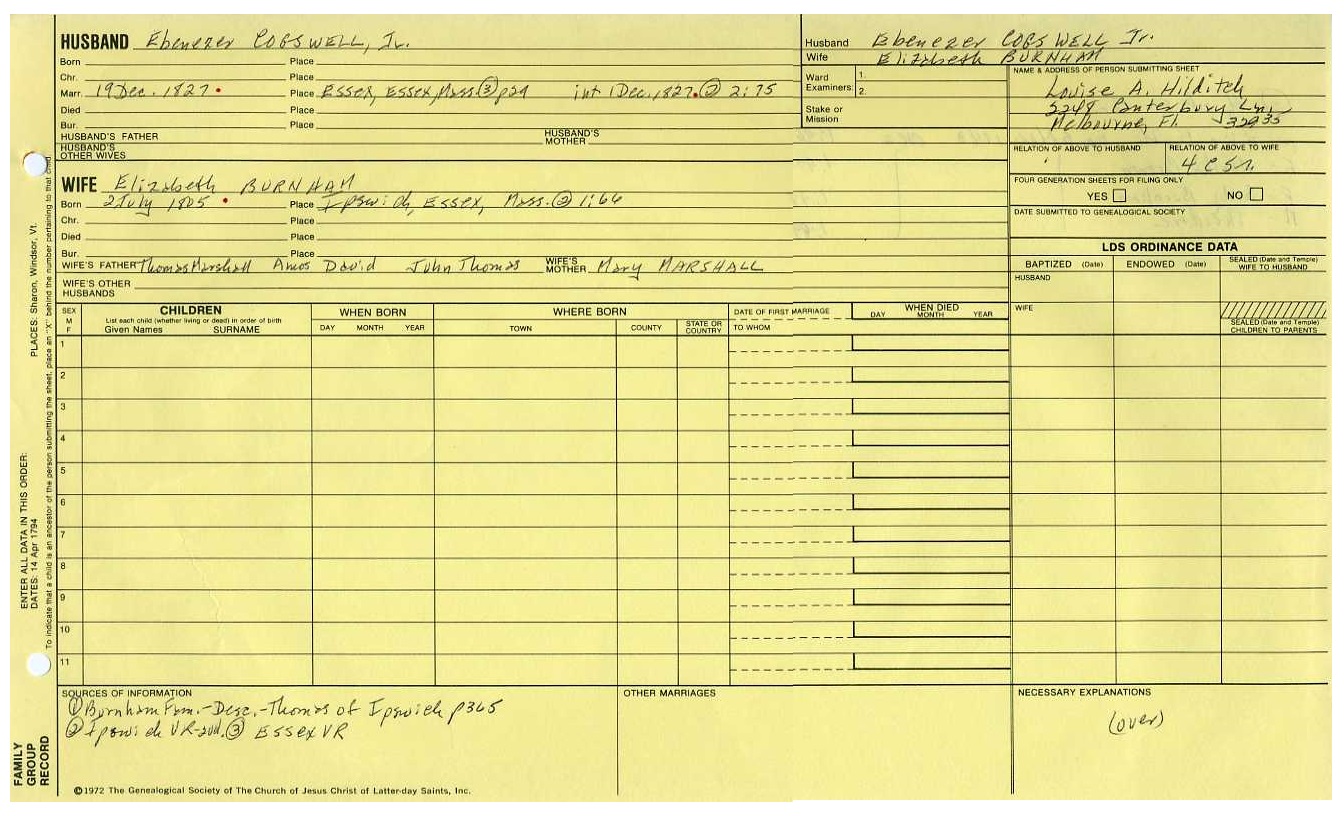 HUSBAND Ebenezer COGSWELL, Jr.
Born Place
Chr. Place
Marr. 19 Dec. 1827 Place Essex, Essex, Mass ③ p29 int 1 Dec. 1827 ② 2:75
Died Place
Bur. Place
HUSBAND'S FATHER HUSBAND'S MOTHER
HUSBAND'S OTHER WIVES
WIFE Elizabeth BURNHAM
Born 2 July 1805 Place Ipswich, Essex, Mass. ② 1:66
Chr. Place
Died Place
Bur. Place
WIFE'S FATHER Thomas Marshall Amos David John Thomas WIFE'S MOTHER Mary MARSHALL
WIFE'S OTHER HUSBANDS
Husband Ebenezer COGSWELL Jr.
Wife Elizabeth BURNHAM
Ward Examiners: 1.
2.
Stake or Mission
NAME & ADDRESS OF PERSON SUBMITTING SHEET
Louise A. Hilditch
3248 Canterbury Ln.
Melbourne, Fl. 32935
RELATION OF ABOVE TO HUSBAND RELATION OF ABOVE TO WIFE
FOUR GENERATION SHEETS FOR FILING ONLY
YES NO
DATE SUBMITTED TO GENEALOGICAL SOCIETY
LDS ORDINANCE DATA
BAPTIZED (Date) ENDOWED (Date) SEALED (Date and Temple) WIFE TO HUSBAND
HUSBAND
WIFE
SEALED (Date and Temple) CHILDREN TO PARENTS
SEX M F
CHILDREN
List each child (whether living or dead) in order of birth
Given Names SURNAME
WHEN BORN
DAY MONTH YEAR
WHERE BORN
TOWN COUNTY STATE OR COUNTRY
DATE OF FIRST MARRIAGE
TO WHOM
WHEN DIED
DAY MONTH YEAR
1
2
3
4
5
6
7
8
9
10
11
SOURCES OF INFORMATION
① Burnham Fam.-Desc.-Thomas of Ipswich p365
② Ipswich VR ③ Essex VR
OTHER MARRIAGES
NECESSARY EXPLANATIONS
(over)
©1972 The Genealogical Society of The Church of Jesus Christ of Latter-day Saints, Inc.
FAMILY GROUP RECORD
ENTER ALL DATA IN THIS ORDER:
DATES: 14 Apr 1794 PLACES: Sharon, Windsor, Vt.
To indicate that a child is an ancestor of the person submitting the sheet, place an "X" behind the number pertaining to that child.